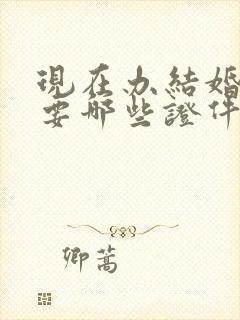 現在办結婚
要哪些證件
卿蒿